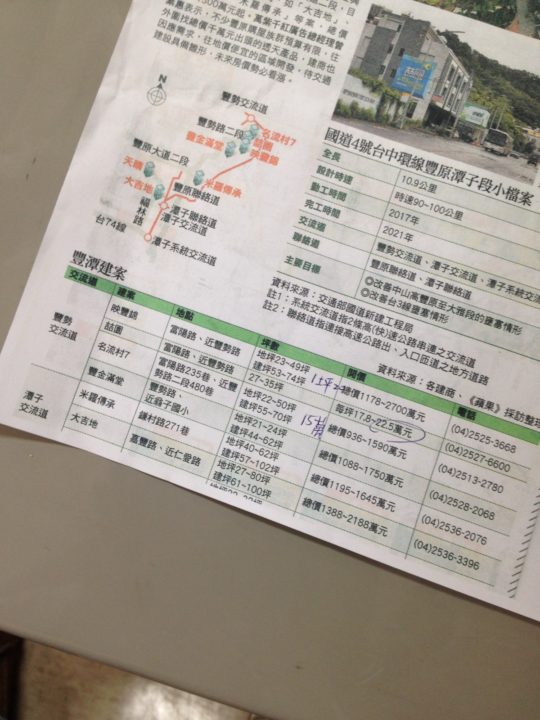 二段，目
如「大吉地」、
「米羅傳承」等案，總價
300萬元起，萬萊千紅廣告總經理曾
表示，不少豐原購屋族群預算有限，往
外圍找總價千萬元出頭的透天產品，建商也
因應需求，往地價便宜的區域開發，待交通
建設具備雛形，未來房價勢必看漲。
N
豐勢交通道
豐勢路二段
名流村7
喆園
映豐錄
豐金滿堂
豐原大道二段
天韻
大吉地
米羅傳承
豐原聯絡道
福林路
潭子聯絡道
潭子交流道
台74線
潭子系統交流道
國道4號台中環線豐原潭子段小檔案
全長 10.9公里
設計時速 時速90~100公里
動工時間 2017年
完工時間 2021年
交流道 豐勢交流道、潭子交流道、潭子系統交流
聯絡道 豐原聯絡道、潭子聯絡道
主要目標 ◎改善中山高豐原至大雅段的壅塞情形
◎改善台3線壅塞情形
資料來源：交通部國道新建工程局
註1：系統交流道指2條高(快)速公路串連之交流道
註2：聯絡道指連接高速公路出、入口匝道之地方道路
豐潭建案
資料來源：各建商、《蘋果》採訪整理
交流道 建案 地點 坪數 開價 電話
豐勢交流道 映豐錄 富陽路、近豐勢路 地坪23~49坪 建坪53~74坪 總價1178~2700萬元 (04)2525-3668
喆園 富陽路、近豐勢路 27~35坪 每坪17.8~22.5萬元 (04)2527-6600
名流村7 富陽路235巷、近豐勢路二段480巷 地坪22~50坪 建坪55~70坪 總價936~1590萬元 (04)2513-2780
豐金滿堂 豐勢路、近翁子國小 地坪21~24坪 建坪44~62坪 總價1088~1750萬元 (04)2528-2068
潭子交流道 米羅傳承 鎌村路271巷 地坪40~62坪 建坪57~102坪 總價1195~1645萬元 (04)2536-2076
大吉地 嘉豐路、近仁愛路 地坪27~80坪 建坪61~100坪 總價1388~2188萬元 (04)2536-3396